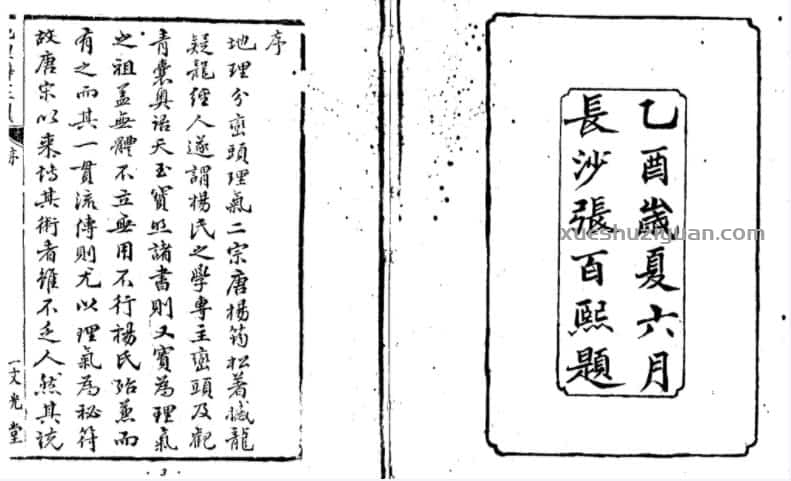 乙酉歲夏六月
長沙張百熙題
xueshuziyuan.com
序
地理分巒頭理氣二宗唐楊筠松著撼龍
疑龍經人遂謂楊氏之學專主巒頭及觀
青囊奧語天玉寶照諸書則又實為理氣
之祖蓋無體不立無用不行楊氏殆兼而
有之而其一貫流傳則尤以理氣為秘符
故唐宋以來持其術者雖不乏人然其說
序
文光堂
3